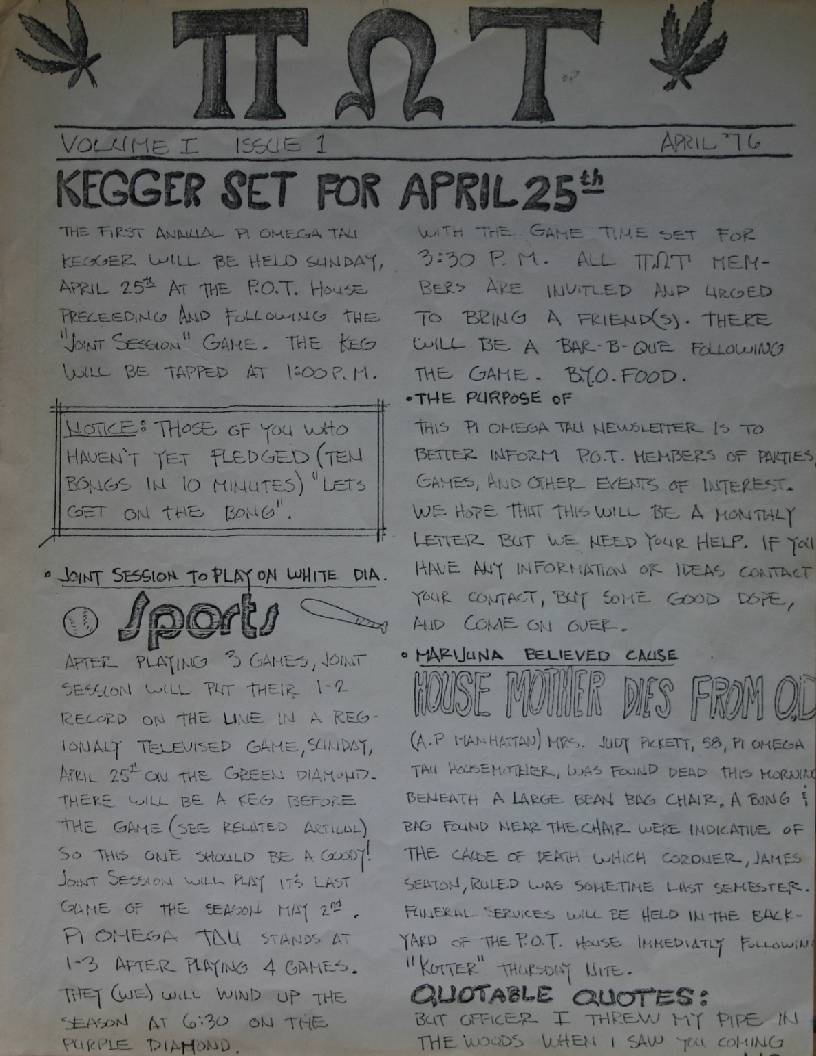 ΠΩΤ
VOLUME I ISSUE 1 APRIL '76
KEGGER SET FOR APRIL 25th
THE FIRST ANNUAL PI OMEGA TAU
KEGGER WILL BE HELD SUNDAY,
APRIL 25th AT THE P.O.T. HOUSE
PRECEEDING AND FOLLOWING THE
"JOINT SESSION" GAME. THE KEG
WILL BE TAPPED AT 1:00 P.M.
NOTICE: THOSE OF YOU WHO
HAVEN'T YET PLEDGED (TEN
BONGS IN 10 MINUTES) "LETS
GET ON THE BONG".
• JOINT SESSION TO PLAY ON WHITE DIA.
Sports
AFTER PLAYING 3 GAMES, JOINT
SESSION WILL PUT THEIR 1-2
RECORD ON THE LINE IN A REG-
IONALY TELEVISED GAME, SUNDAY,
APRIL 25th ON THE GREEN DIAMOND.
THERE WILL BE A KEG BEFORE
THE GAME (SEE RELATED ARTICAL)
SO THIS ONE SHOULD BE A GOODY!
JOINT SESSION WILL PLAY IT'S LAST
GAME OF THE SEASON MAY 2nd.
PI OMEGA TAU STANDS AT
1-3 AFTER PLAYING 4 GAMES.
THEY (WE) WILL WIND UP THE
SEASON AT 6:30 ON THE
PURPLE DIAMOND.
WITH THE GAME TIME SET FOR
3:30 P.M. ALL ΠΩΤ MEM-
BERS ARE INVITLED AND URGED
TO BRING A FRIEND(S). THERE
WILL BE A BAR-B-QUE FOLLOWING
THE GAME. B.Y.O. FOOD.
• THE PURPOSE OF
THIS PI OMEGA TAU NEWSLETTER IS TO
BETTER INFORM P.O.T. MEMBERS OF PARTIES,
GAMES, AND OTHER EVENTS OF INTEREST.
WE HOPE THAT THIS WILL BE A MONTHLY
LETTER BUT WE NEED YOUR HELP. IF YOU
HAVE ANY INFORMATION OR IDEAS CONTACT
YOUR CONTACT, BUY SOME GOOD DOPE,
AND COME ON OVER.
• MARIJUNA BELIEVED CAUSE
HOUSE MOTHER DIES FROM O.D
(A.P MANHATTAN) MRS. JUDY PICKETT, 58, PI OMEGA
TAU HOUSEMOTHER, WAS FOUND DEAD THIS MORNING
BENEATH A LARGE BEAN BAG CHAIR. A BONG &
BAG FOUND NEAR THE CHAIR WERE INDICATIVE OF
THE CAUSE OF DEATH WHICH CORONER, JAMES
SEATON, RULED WAS SOMETIME LAST SEMESTER.
FUNERAL SERVICES WILL BE HELD IN THE BACK-
YARD OF THE P.O.T. HOUSE IMMEDIATLY FOLLOWING
"KOTTER" THURSDAY NITE.
QUOTABLE QUOTES:
BUT OFFICER I THREW MY PIPE IN
THE WOODS WHEN I SAW YOU COMING